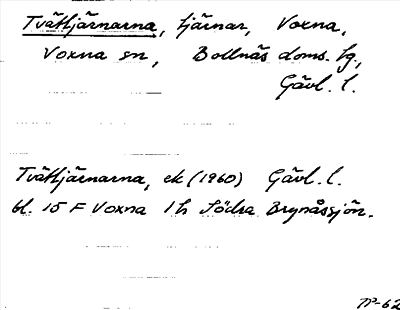 Tvättjärnarna, tjärnar, Voxna,
Voxna sn, Bollnäs doms. fg.,
Gävl. l.
Tvättjärnarna, ek (1960) Gävl. l.
bl. 15 F Voxna 1 h Södra Brynåssjön.